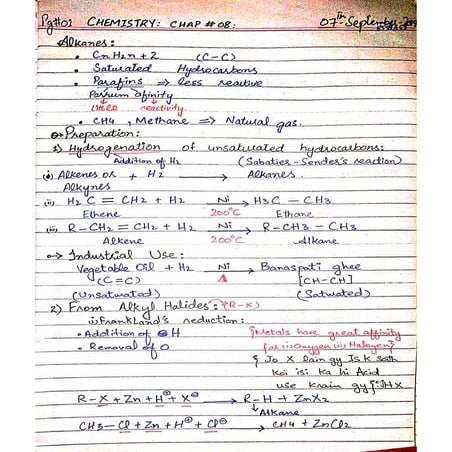 Pg#01 CHEMISTRY: CHAP #08: 07th September
Alkanes:
• CnH2n+2 (C-C)
• Saturated Hydrocarbons
• Parafins => less reactive
Parrum afinity
little reactivity.
• CH4, Methane => Natural gas.
Preparation:
1) Hydrogenation of unsaturated hydrocarbons:
Addition of H2 (Sabatier-Sender's reaction)
(i) Alkenes or + H2 → Alkanes.
Alkynes
(ii) H2C = CH2 + H2 Ni → H3C - CH3
Ethene 200°C Ethane
(iii) R-CH2 = CH2 + H2 Ni → R-CH3-CH3
Alkene 200°C Alkane
Industrial Use:
Vegetable Oil + H2 Ni → Banaspati ghee
(C=C) Δ [CH-CH]
(Unsaturated) (Saturated)
2) From Alkyl Halides: (R-X)
i) Frankland's reduction:
• Addition of H {Metals have great affinity
• Removal of {as i) Oxygen (ii) Halogen}
{Jo X lain gy Is k sath
koi isi ka hi Acid
use krain gy} : HX
R-X + Zn + H⊕ + X⊖ → R-H + ZnX2
Alkane
CH3-Cl + Zn + H⊕ + Cl⊖ → CH4 + ZnCl2